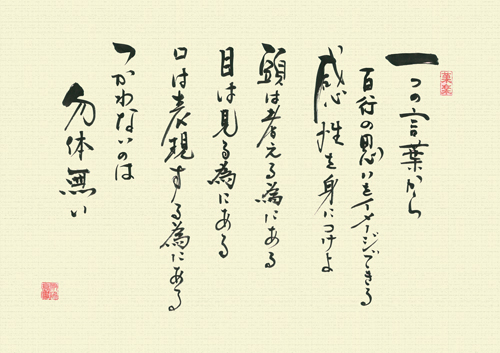 一つの言葉から
百行の思いをイメージできる
感性を身につけよ
頭は考える為にある
目は見る為にある
口は表現する為にある
つかわないのは
勿体無い